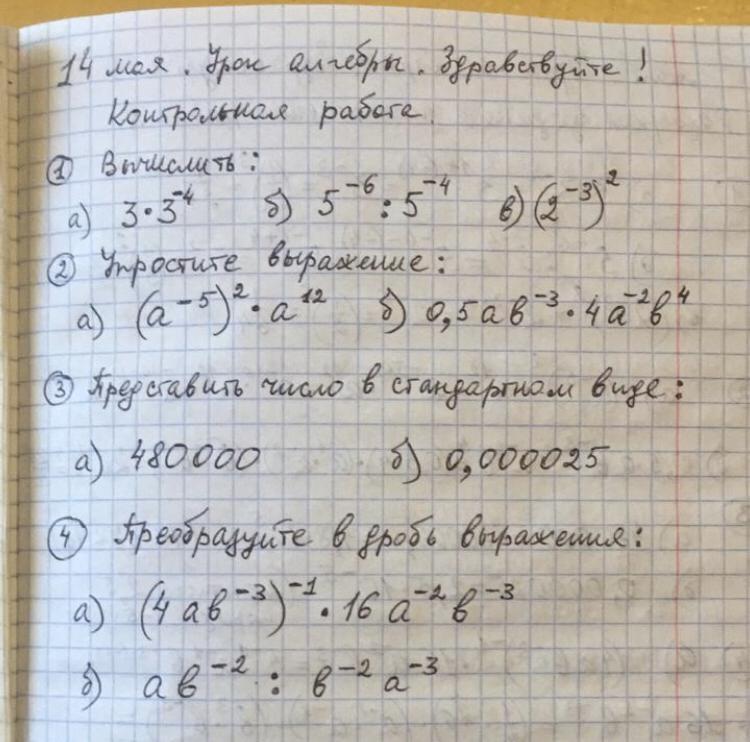 14 мая. Урок алгебры. Здравствуйте!
Контрольная работа.
① Вычислить:
а) 3·3⁻⁴ б) 5⁻⁶ : 5⁻⁴ в) (2⁻³)²
② Упростите выражение:
а) (a⁻⁵)² · a¹² б) 0,5ab⁻³ · 4a⁻²b⁴
③ Представить число в стандартном виде:
а) 480000 б) 0,000025
④ Преобразуйте в дробь выражения:
а) (4ab⁻³)⁻¹ · 16a⁻²b⁻³
б) ab⁻² : b⁻²a⁻³